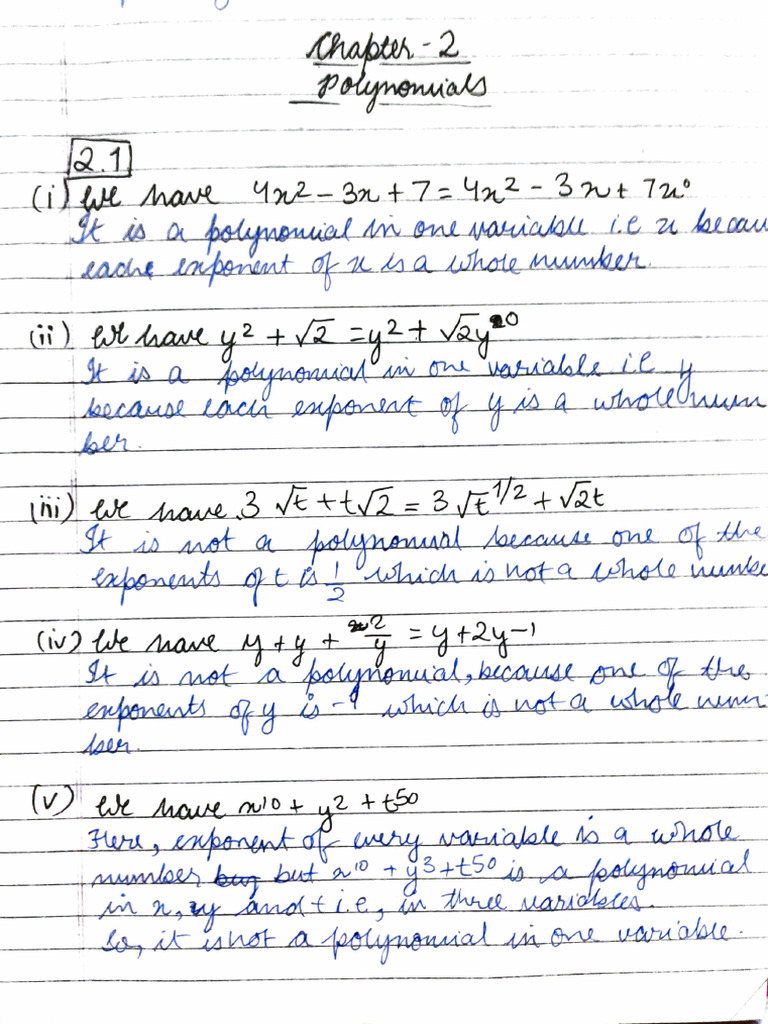 Chapter-2
Polynomials
2.1
(i) We have 4x² - 3x + 7 = 4x² - 3x + 7x⁰
It is a polynomial in one variable i.e x becau
each exponent of x is a whole number.
(ii) We have y² + √2 = y² + √2y⁰
It is a polynomial in one variable i.e y
because each exponent of y is a whole num
ber.
(iii) We have 3 √t + t√2 = 3 √t^1/2 + √2t
It is not a polynomial because one of the
exponents of t is 1/2 which is not a whole numbe
(iv) We have y + y + 2/y = y + 2y-1
It is not a polynomial, because one of the
exponents of y is -1 which is not a whole num
ber.
(v) We have x¹⁰ + y² + t⁵⁰
Here, exponent of every variable is a whole
number, but x¹⁰ + y³ + t⁵⁰ is a polynomial
in x, y and t i.e, in three variables.
So, it is not a polynomial in one variable.